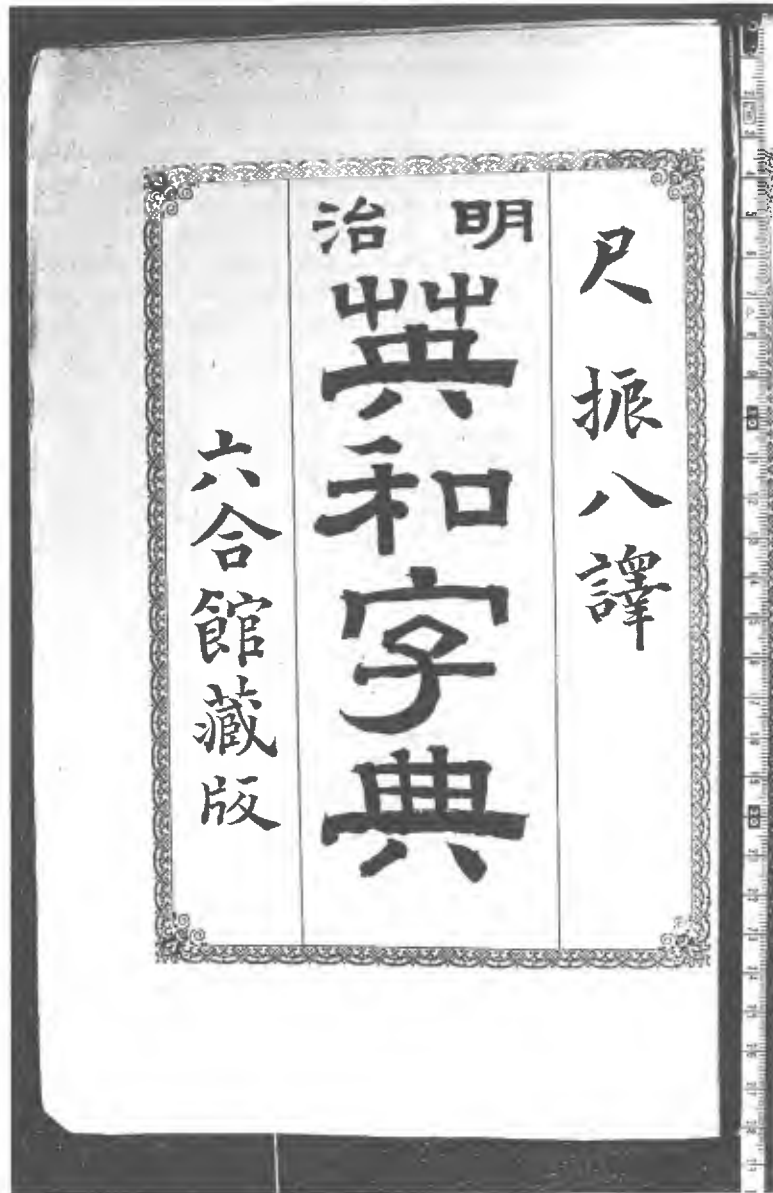 尺振八譯
明治
英和字典
六合館藏版